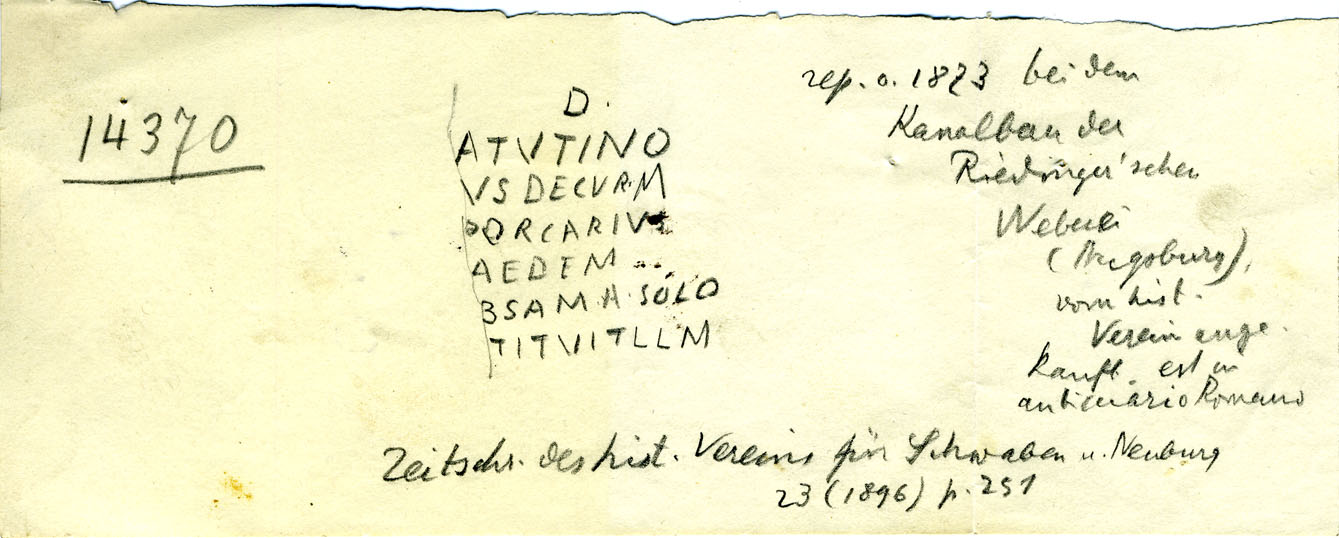 14370
D.
ATVTINO
VS DECVRM
PORCARIVS
AEDEM ...
BSAM A·SOLO
TITVITLLM
rep. a. 1873 bei dem
Kanalbau der
Riedinger'schen
Weberei
(Augsburg),
vom hist.
Verein ange-
kauft. est in
antiquario Romano
Zeitschr. des hist. Vereins für Schwaben u. Neuburg
23 (1896) p. 251